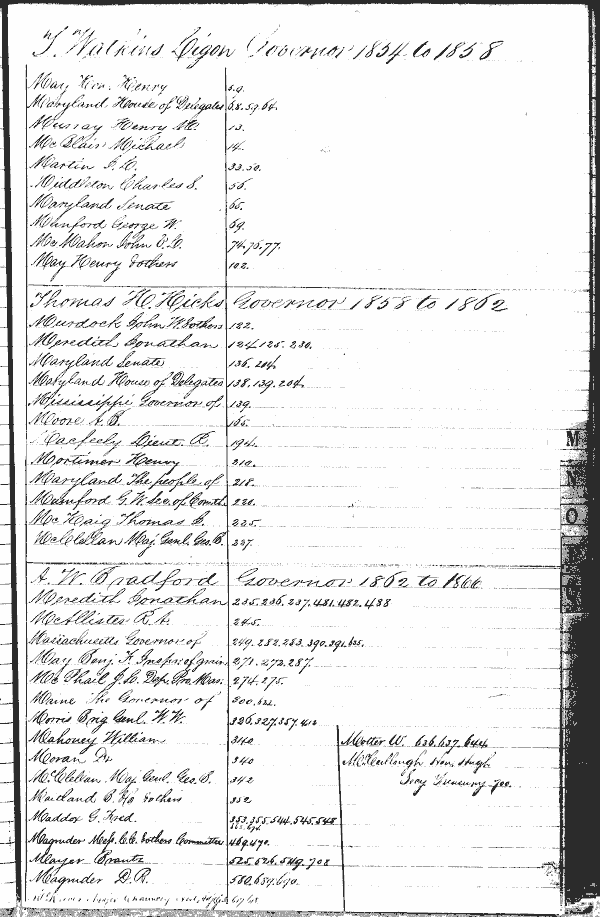 "T." Watkins Ligon Governor 1854 to 1858
May Hon. Henry 5.9.
Maryland House of Delegates 58.59.64.
Murray Henry M. 13.
McBlair Michael 14.
Martin 33.50.
Middleton Charles S. 56.
Maryland Senate 65.
Munford George W. 69.
McMahon John V. L. 74.76.77.
May Henry & others 102.
Thomas H. Hicks Governor 1858 to 1862
Murdock John W. & others 122.
Meredith Jonathan 124.125.230.
Maryland Senate 136.204.
Maryland House of Delegates 138.139.204.
Mississippi Governor of 139.
Moore A. B. 165.
Macfeely Lieut. R. 194.
Mortimer Henry 210.
Maryland The people of 218.
Munford G. W. Sec. of Comth. 220.
McKaig Thomas 225.
McClellan Maj. Genl. Geo. B. 227.
A. W. Bradford Governor 1862 to 1866
Meredith Jonathan 235.236.237.481.482.488
McAllister R. A. 245.
Massachusetts Governor of 249.282.283.390.391.
May Benj. F. Inspr. of grain 271.273.287.
McPhail J. L. Dep. Pro. Mar. 274.275.
Maine The Governor of 300.
Morris Brig Genl. W. W. 326.327.357.
Mahoney William 340
Motter W. 636.637.644
Moran Dr. 340
McCullough Hon. Hugh
McClellan Maj. Genl. Geo. B. 342
Secy Treasury 700.
Maitland & others 352
Maddox G. Fred. 353.355.544.545.548
Magruder Mess. C. C. & others Committee 469.470.
Mayer Brantz 525.526.549.708
Magruder D. R. 580.659.670.
M
N
O